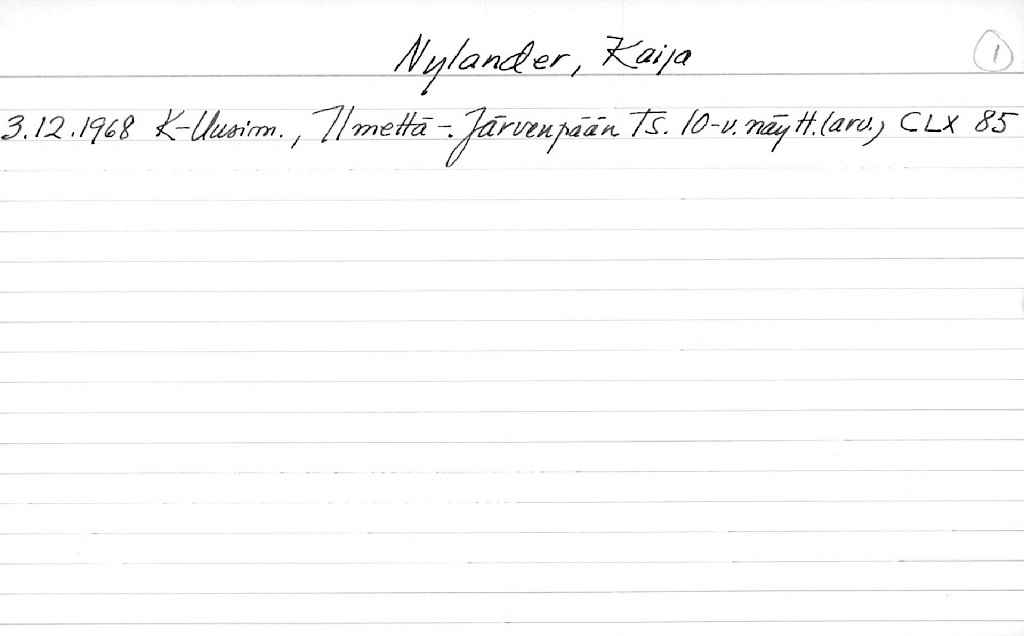 Nylander, Kaija
1
3.12.1968 K-Uusim., Ilmettä-. Järvenpään Ts. 10-v. näytt. (arv.) CLX 85